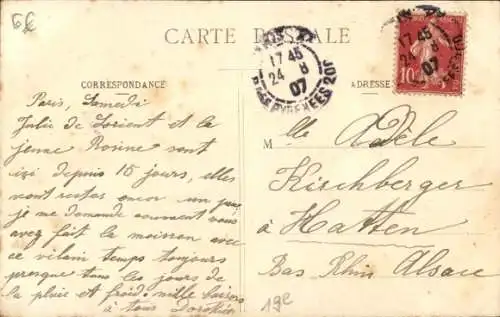 CARTE POSTALE
17 45
24 8
07
Bᴰ DES PYRENEES 20J
17 45
24
07
10
CORRESPONDANCE
ADRESSE
Paris, Samedi
Julie de Lorient et la
jeune Rosine sont
ici depuis 15 jours, elles
vont rester encor un peu
je me demande comment vous
avez fait la moisson avec
ce vilain temps toujours
presque tous les jours de
la pluie et froid. mille baisers
à tous Dorothée
Mlle Adèle
Kirschberger
à Hatten
Bas Rhin Alsace
19e